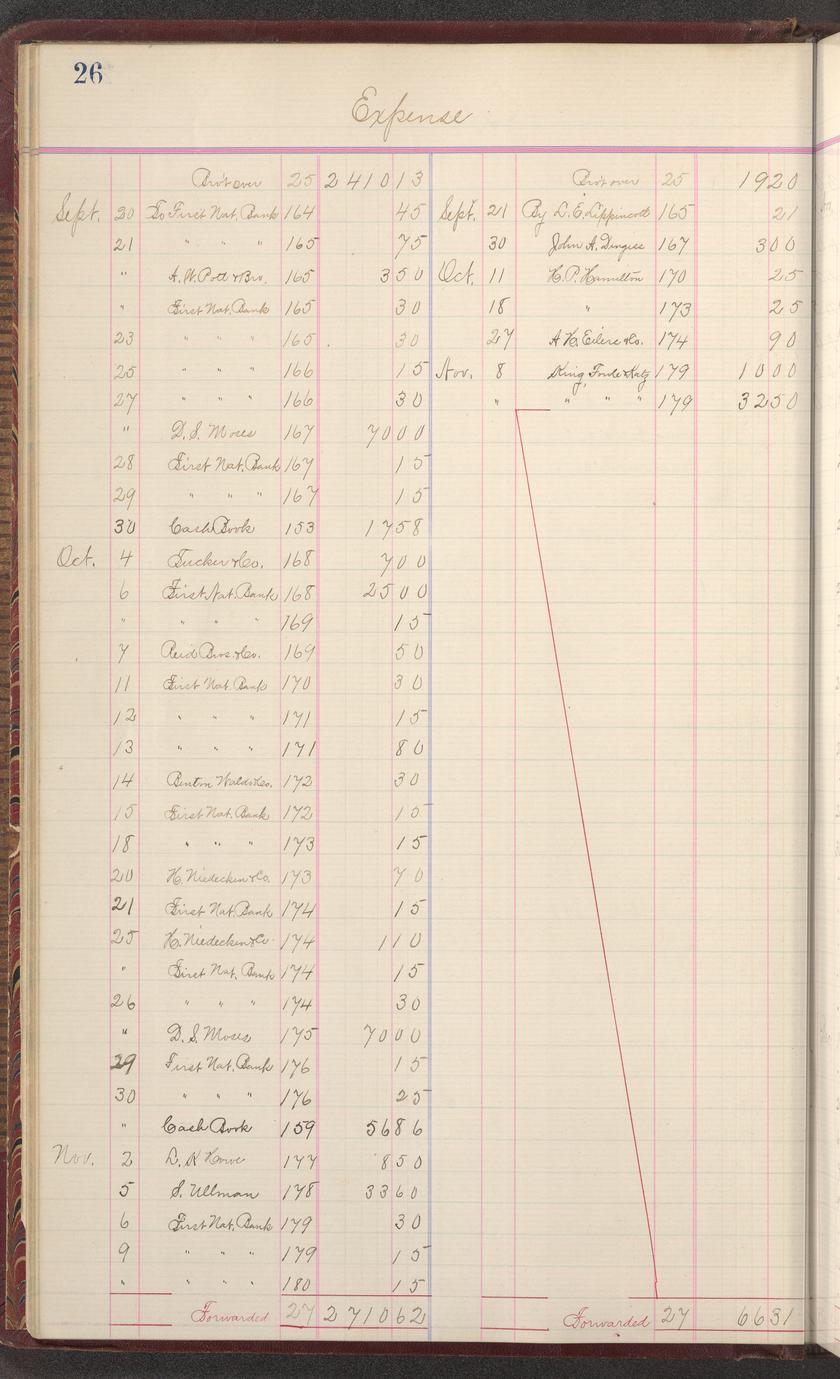 26
Expense
Bro't over 25 2410 13
Sept. 20 To First Nat. Bank 164 45
21 " " " 165 75
" A. W. Pott & Bro. 165 3 50
" First Nat. Bank 165 30
23 " " " 165 30
25 " " " 166 15
27 " " " 166 30
" D. S. Moses 167 70 00
28 First Nat. Bank 167 15
29 " " " 167 15
30 Cash Book 153 17 58
Oct. 4 Tucker & Co. 168 7 00
6 First Nat. Bank 168 25 00
" " " " 169 15
7 Reid Bros. & Co. 169 50
11 First Nat. Bank 170 30
12 " " " 171 15
13 " " " 171 80
14 Benton Waldo & Co. 172 30
15 First Nat. Bank 172 15
18 " " " 173 15
20 H. Niedecken & Co. 173 70
21 First Nat. Bank 174 15
25 H. Niedecken & Co. 174 1 10
" First Nat. Bank 174 15
26 " " " 174 30
" D. S. Moses 175 70 00
29 First Nat. Bank 176 15
30 " " " 176 25
" Cash Book 159 56 86
Nov. 2 L. K Howe 177 8 50
5 S. Ullman 178 33 60
6 First Nat. Bank 179 30
9 " " " 179 15
" " " " 180 15
Forwarded 27 2710 62
Bro't over 25 19 20
Sept. 21 By L. E. Lippincott 165 21
30 John A. Dingess 167 3 00
Oct. 11 H. P. Hamilton 170 25
18 " 173 25
27 A. H. Eilers & Co. 174 90
Nov. 8 King, Forde & Katz 179 10 00
" " " " 179 32 50
Forwarded 27 66 31